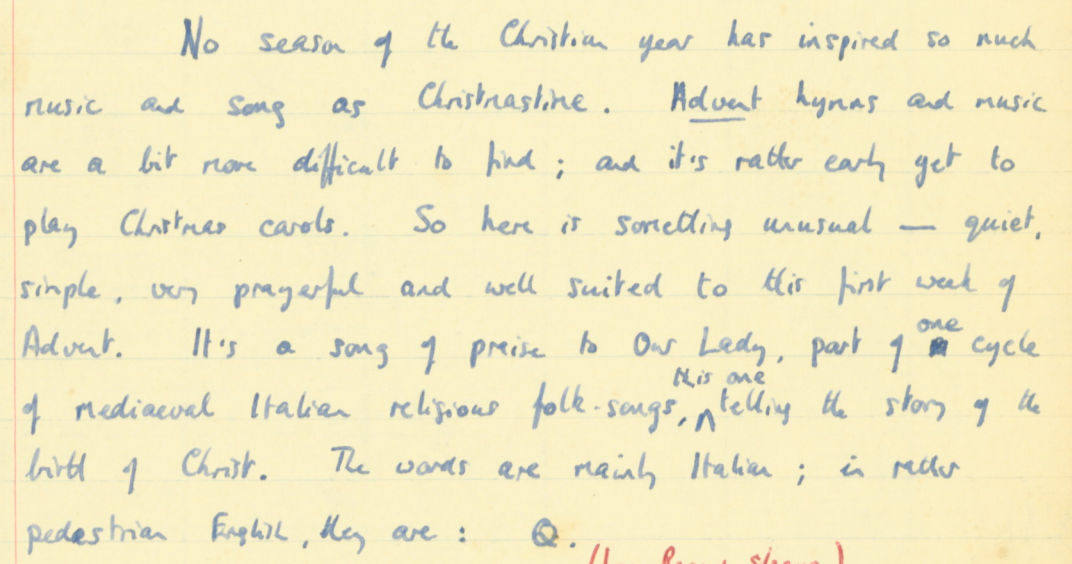 No season of the Christian year has inspired so much
music and song as Christmastime. Advent hymns and music
are a bit more difficult to find ; and it's rather early yet to
play Christmas carols. So here is something unusual — quiet,
simple, very prayerful and well suited to this first week of
Advent. It's a song of praise to Our Lady, part of one cycle
of mediaeval Italian religious folk-songs, this one telling the story of the
birth of Christ. The words are mainly Italian ; in rather
pedestrian English, they are : Q.